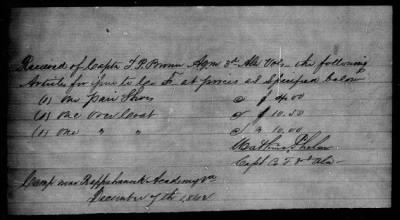 Received of Capt T. P. Brown Aqm 3d Ala Vols the following
Articles for issue to Co F. at prices as Specified below
(1) One pair Shoes @ $ 4.00
(1) One over Coat @ $ 10.50
(1) One " " @ " 10.00
Capt Co F 3d Ala
Camp near Rappahanock Academy Va
December 17th 1862